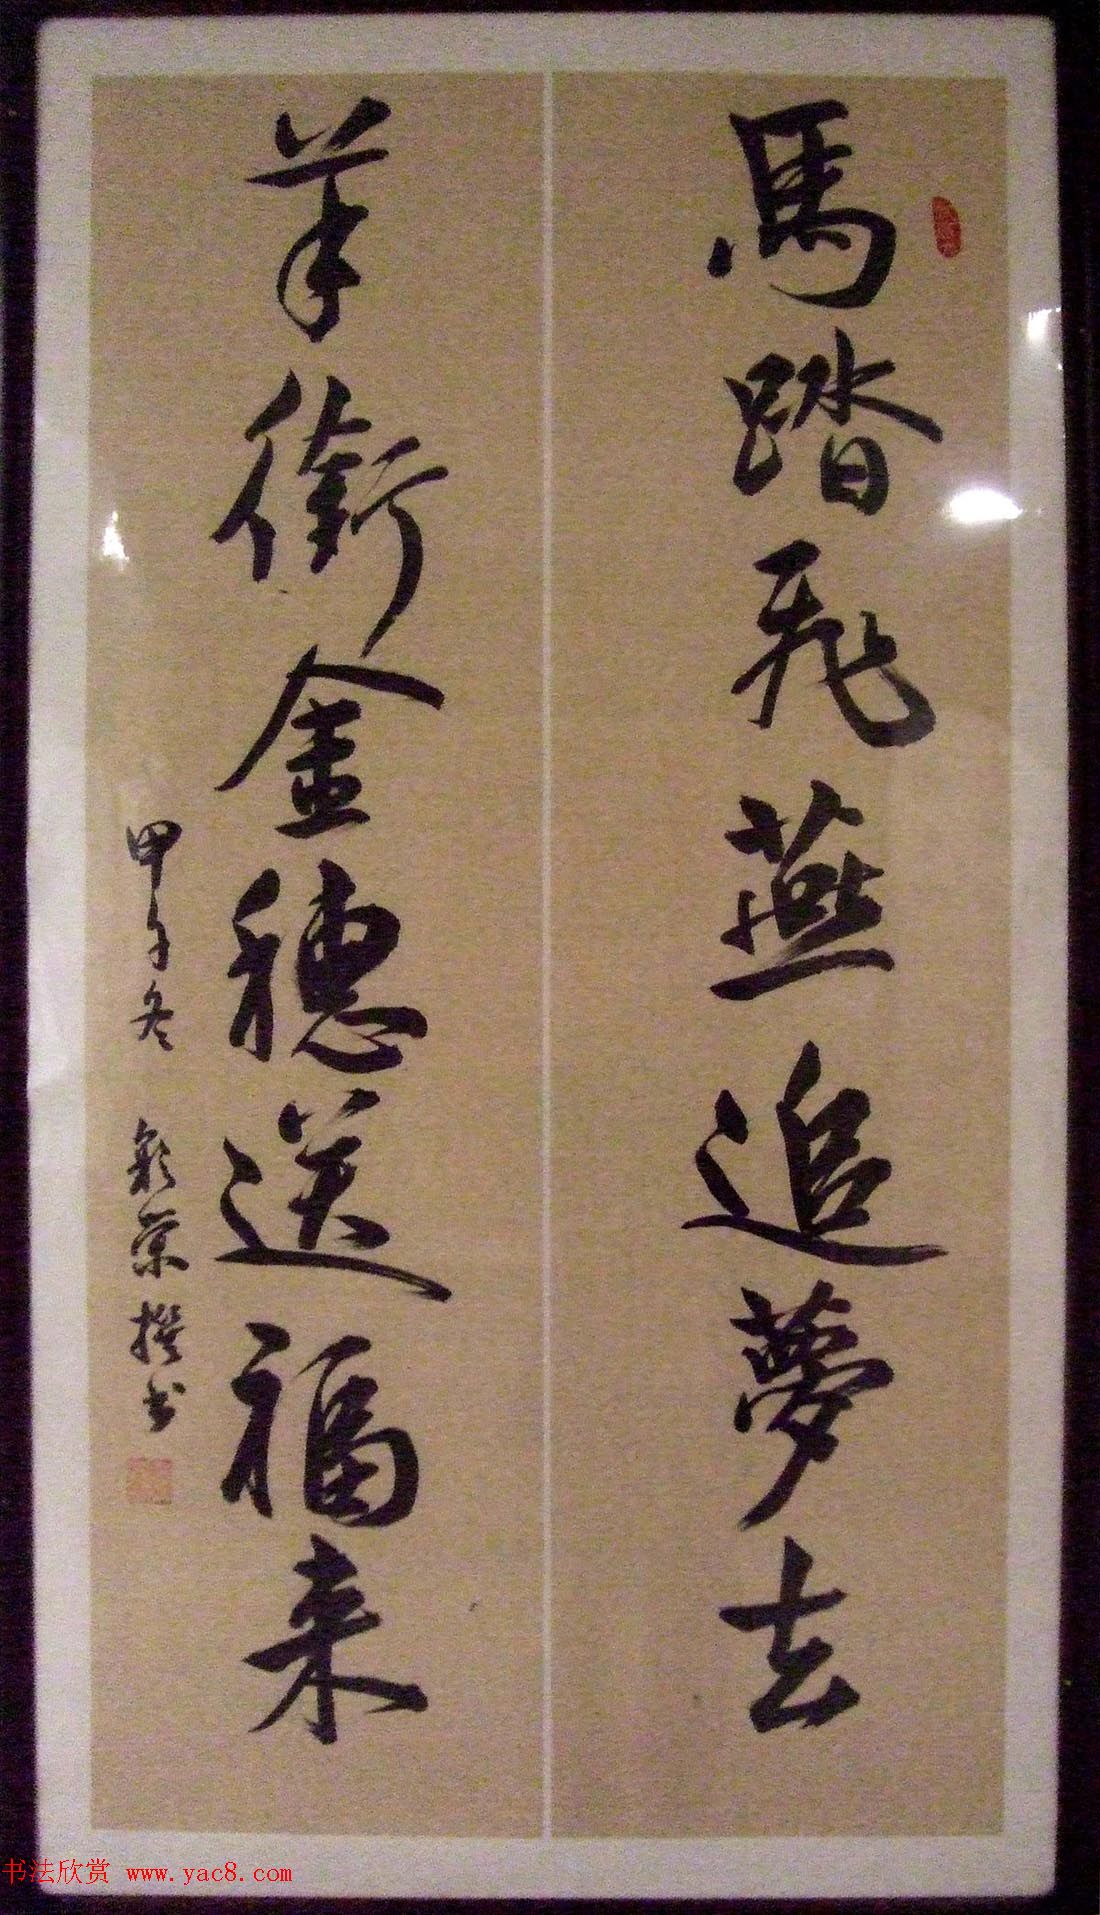 馬踏飛燕追夢去
羊銜金穗送福来
甲午冬 彩榮撰书
书法欣赏 www.yac8.com